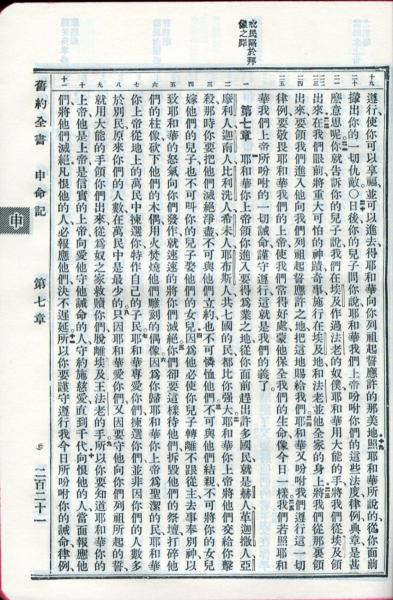 十九 遵行使你可以享福並可以進去得耶和華向你列祖起誓應許的那美地照耶和華所說的從你面前
二十 攆出你的一切仇敵〇日後你的兒子問你說耶和華我們上帝吩咐你們的這些法度律例典章是甚
二一 麼意思呢你就告訴你的兒子說我們在埃及作過法老的奴僕耶和華用大能的手將我們從埃及領
二二 出來在我們眼前將重大可怕的神蹟奇事施行在埃及地和法老並他全家的身上將我們從那裏領
二四 出來要領我們進入他向我們列祖起誓應許之地把這地賜給我們耶和華又吩咐我們遵行這一切
二五 律例要敬畏耶和華我們的上帝使我們常得好處蒙他保全我們的生命像今日一樣我們若照耶和
華我們上帝所吩咐的一切誡命謹守遵行這就是我們的義了。
一 第七章 耶和華你上帝領你進入要得為業之地從你面前趕出許多國民就是赫人革迦撒人亞
二 摩利人迦南人比利洗人希未人耶布斯人共七國的民都比你強大耶和華你上帝將他們交給你擊
三 殺那時你要把他們滅絕淨盡不可與他們立約也不可憐恤他們不可與他們結親不可將你的女兒
四 嫁他們的兒子也不可叫你的兒子娶他們的女兒因為他必使你兒子轉離不跟從主去事奉別神以
五 致耶和華的怒氣向你們發作就速速的將你們滅絕你們卻要這樣待他們拆毀他們的祭壇打碎他
六 們的柱像砍下他們的木偶用火焚燒他們雕刻的偶像因為你歸耶和華你上帝為聖潔的民耶和華
七 你上帝從地上的萬民中揀選你特作自己的子民耶和華專愛你們揀選你們並非因你們的人數多
八 於別民原來你們的人數在萬民中是最少的只因耶和華愛你們又因要守他向你們列祖所起的誓
九 就用大能的手領你們出來從為奴之家救贖你們脫離埃及王法老的手所以你要知道耶和華你的
十 上帝他是上帝是信實的上帝向愛他守他誡命的人守約施慈愛直到千代向恨他的人當面報應他
十一 們將他們滅絕凡恨他的人必報應他們決不遲延所以你要謹守遵行我今日所吩咐你的誡命律例
舊約全書 申命記 第七章 二百二十一
申